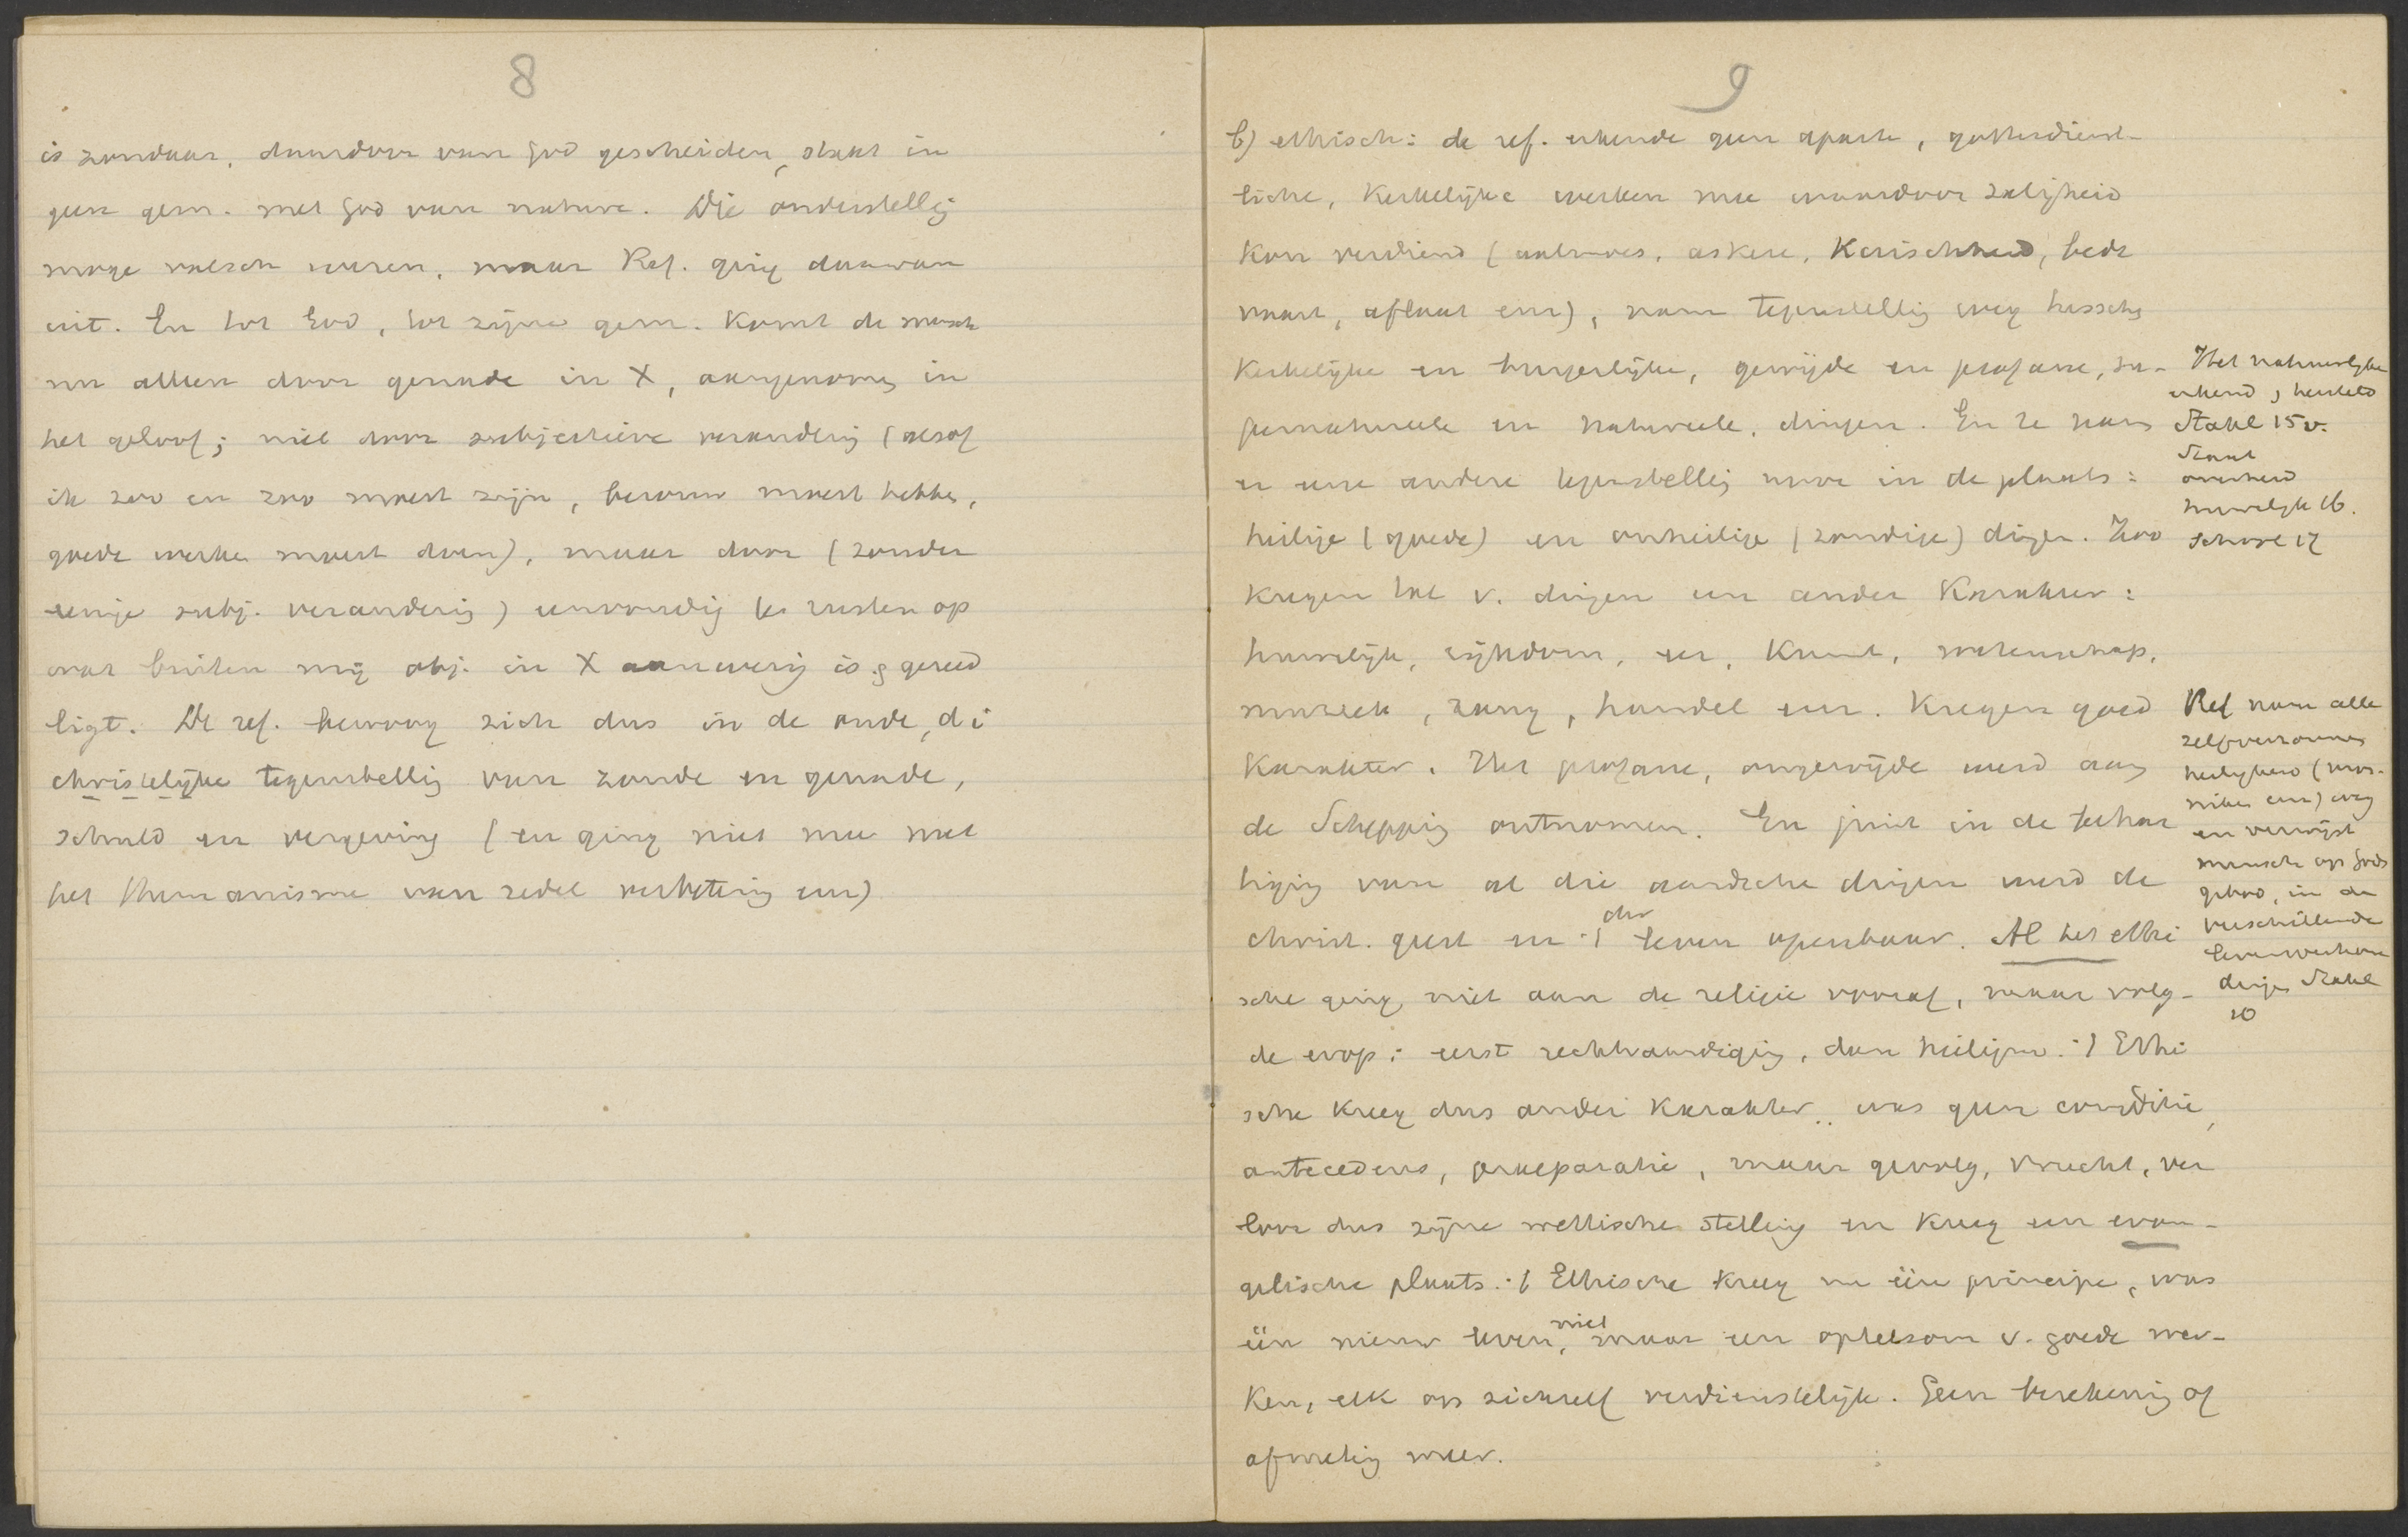 8
is zondaar, daardoor van God gescheiden, staat in
geen gem. met God van nature. Die onderstellig
moge valsch wezen, maar Ref. ging daarvan
uit. En tot God, tot zijne gem. komt de mensch
nu alleen door genade in X, aangenomen in
het geloof; niet door subjectieve veranderig (alsof
ik zoo en zoo moest zijn, berouw moest hebben,
goede werken moest doen), maar door (zonder
eenige subj. veranderig) eenvoudig te rusten op
wat buiten mij obj. in X aanwezig is & gereed
ligt. De ref. bewoog zich dus in de oude, d i
christelijke tegenstellig van zonde en genade,
schuld en vergeving (en ging niet mee met
het Humanisme van zedel verbetering enz)
9
b) ethisch: de ref. erkende geen aparte, gottesdienst-
liche, kerkelijke werken mee waardoor zaligheid
kon verdiend (aalmoes, askese, Kuischheid, bede
vaart, aflaat enz), nam tegenstellig weg tusschen
kerkelijke en burgerlijke, gewijde en profane, su-
pernatureele en natureele, dingen. En ze nam
er eene andere tegenstellig voor in de plaats:
heilige (goede) en onheilige (zondige) dingen. Zoo
kregen tal v. dingen een ander Karakter:
huwelijk, rijkdom, eer, Kunst, wetenschap,
muziek, zang, handel enz. Kregen goed
Karakter. Het profane, ongewijde werd aan
de Scheppig ontnomen. En juist in de behar
tiging van al die aardsche dingen werd de
christ. geest en ·/. chr leven openbaar. Al het ethi
sche ging niet aan de religie vooraf, maar volg-
de erop: eerst rechtvaardiging, dan heiligm. ·/. Ethi
sche kreeg dus ander Karakter.. was geen conditie,
antecedens, praeparatie, maar gevolg, vrucht, ver
loor dus zijne wettische stelling en kreeg een evan-
gelische plaats. ·/. Ethische kreeg nu één principe, was
één nieuw leven, niet maar een optelsom v. goede wer-
ken, elk op zichzelf verdienstelijk. Geen berekenig of
afmetig meer.
Het natuurlijke
erkend, hersteld
Stahl 15 v.
Staat
overheid
huwelijk 16.
School 17
Ref nam alle
zelfverzonnen
heiligheid (mon-
niken enz) weg
en verwijst
mensch op Gods
gebod, in de
verschillende
levensverhou
dingen Stahl
20